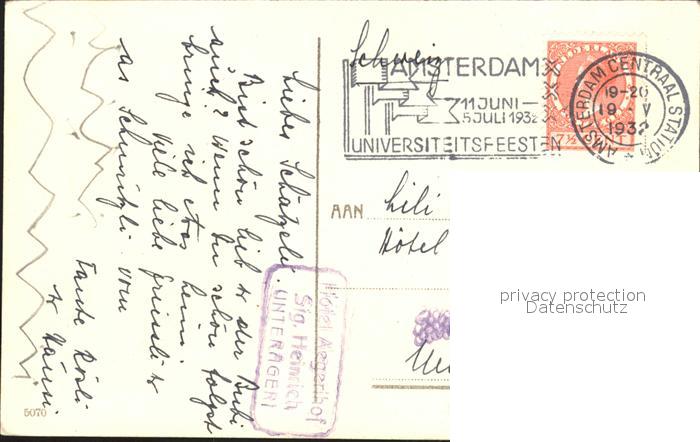 Schweiz
AMSTERDAM
11 JUNI —
5 JULI 1932
UNIVERSITEITSFEESTEN
AMSTERDAM CENTRAAL STATION
19-20
19 V
1932
7½
AAN Lili
Hôtel
Liebes Schätzeli!
Bist schön lieb & der Bubi
auch? Wenn Du schön folgst
bringe ich etwas heim.
Viele liebe Grüessli &
as Schmützli vom
Tante Rösli
& Hänsi.
Hotel Aegerihof
Sig. Heinrich
UNTERÄGERI
5070
privacy protection
Datenschutz